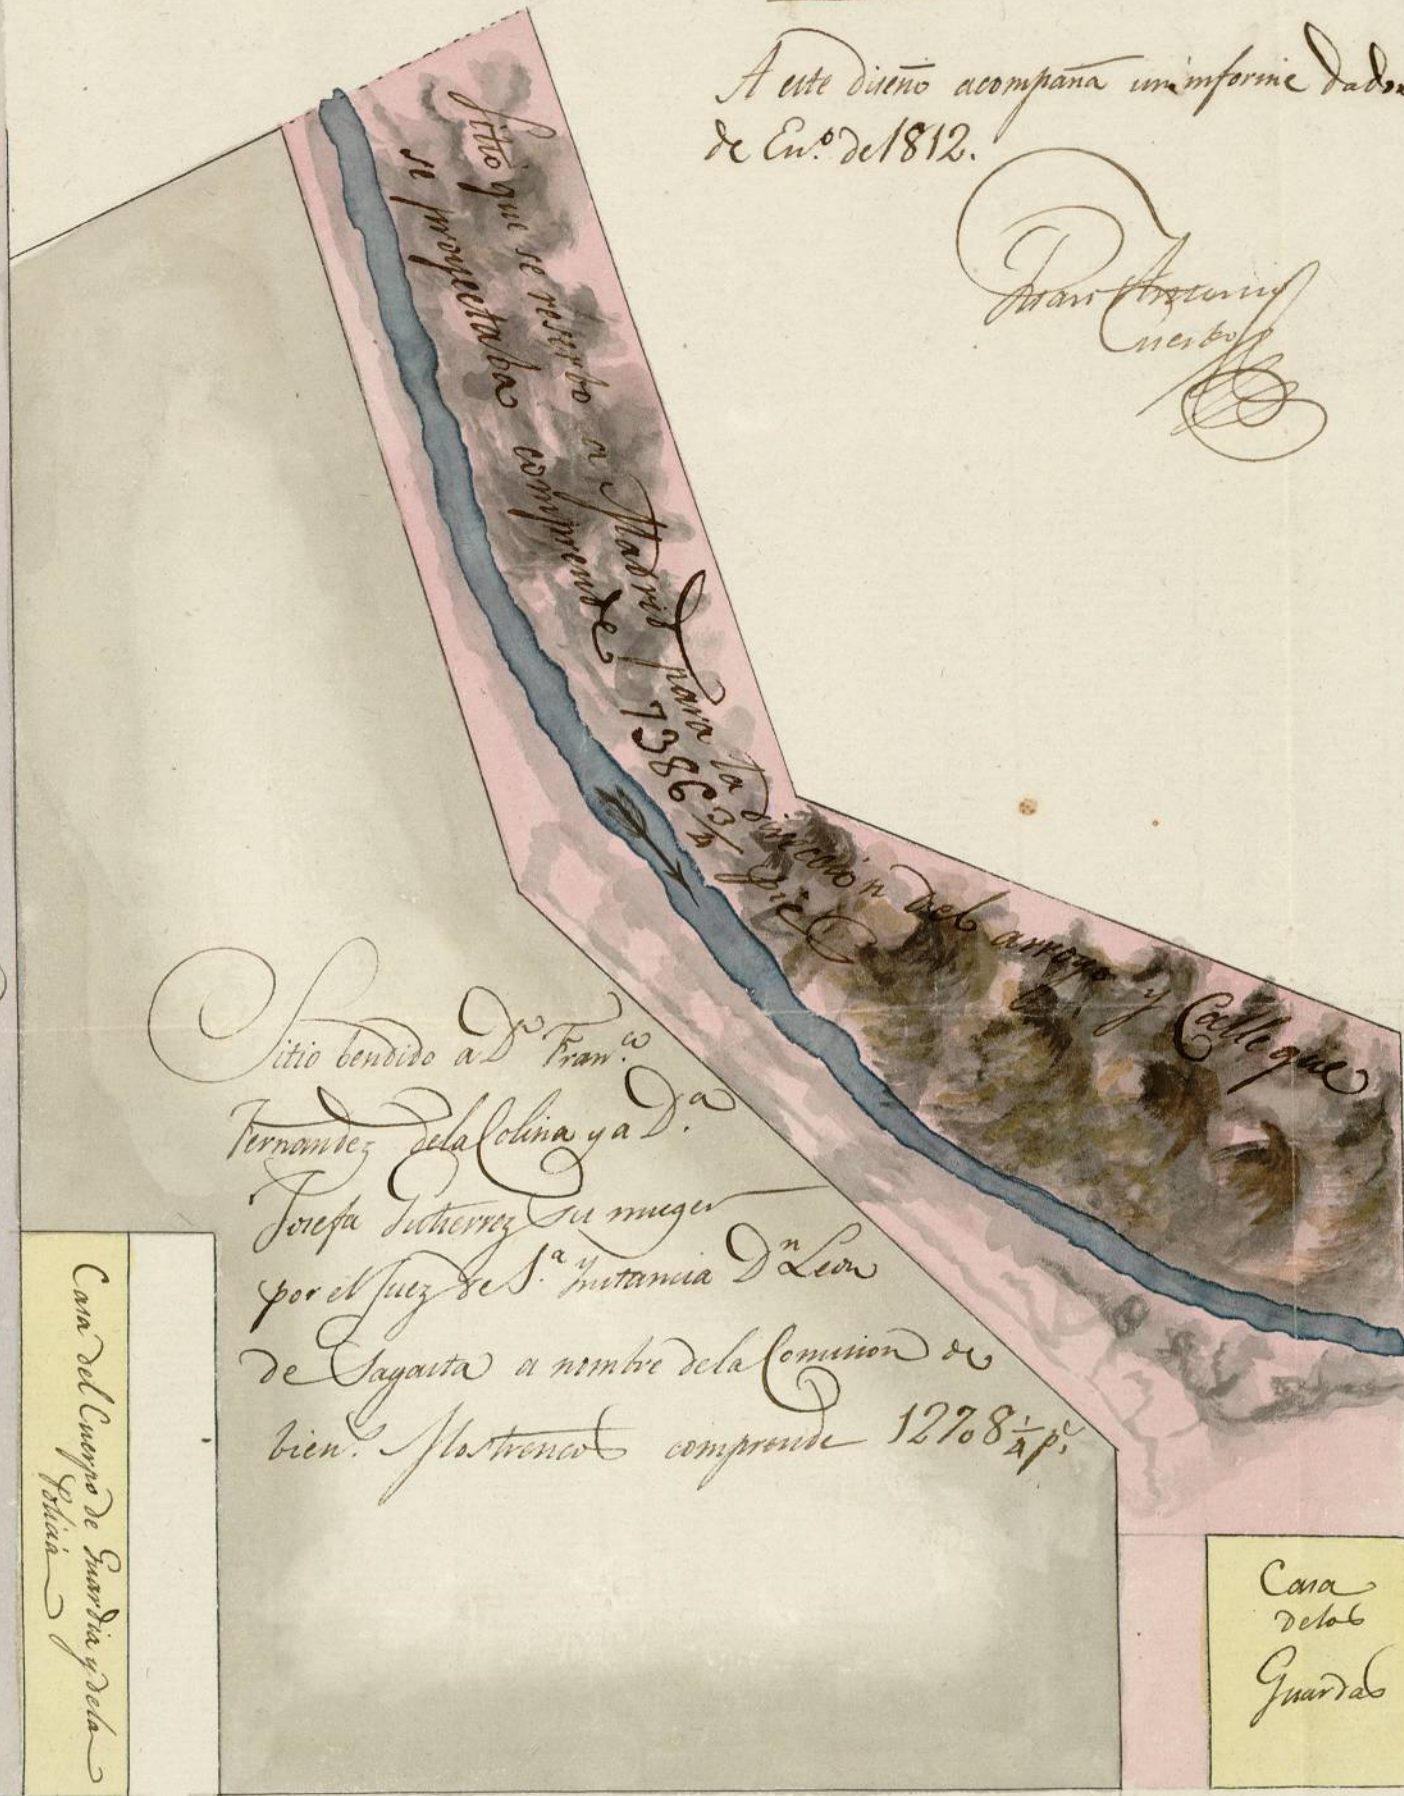 A este diseño acompaña un informe dado
de En.º de 1812.
Juan Antonio
Cuerbo
Sitio que se reserbo a Madrid para la direccion del arroyo y Calle que
se proyectaba comprende 7386 3/4 pies
Sitio bendido a Dn Fran.co
Fernandez de la Colina y a D.a
Josefa Gutierrez su muger
por el Juez de 1.a Instancia Dn Leon
de Sagasta a nombre de la Comision de
bien.s Mostrencos comprende 12708 1/4 p.s
Casa del Cuerpo de Guardia y de la
Policia
Casa
de los
Guardas